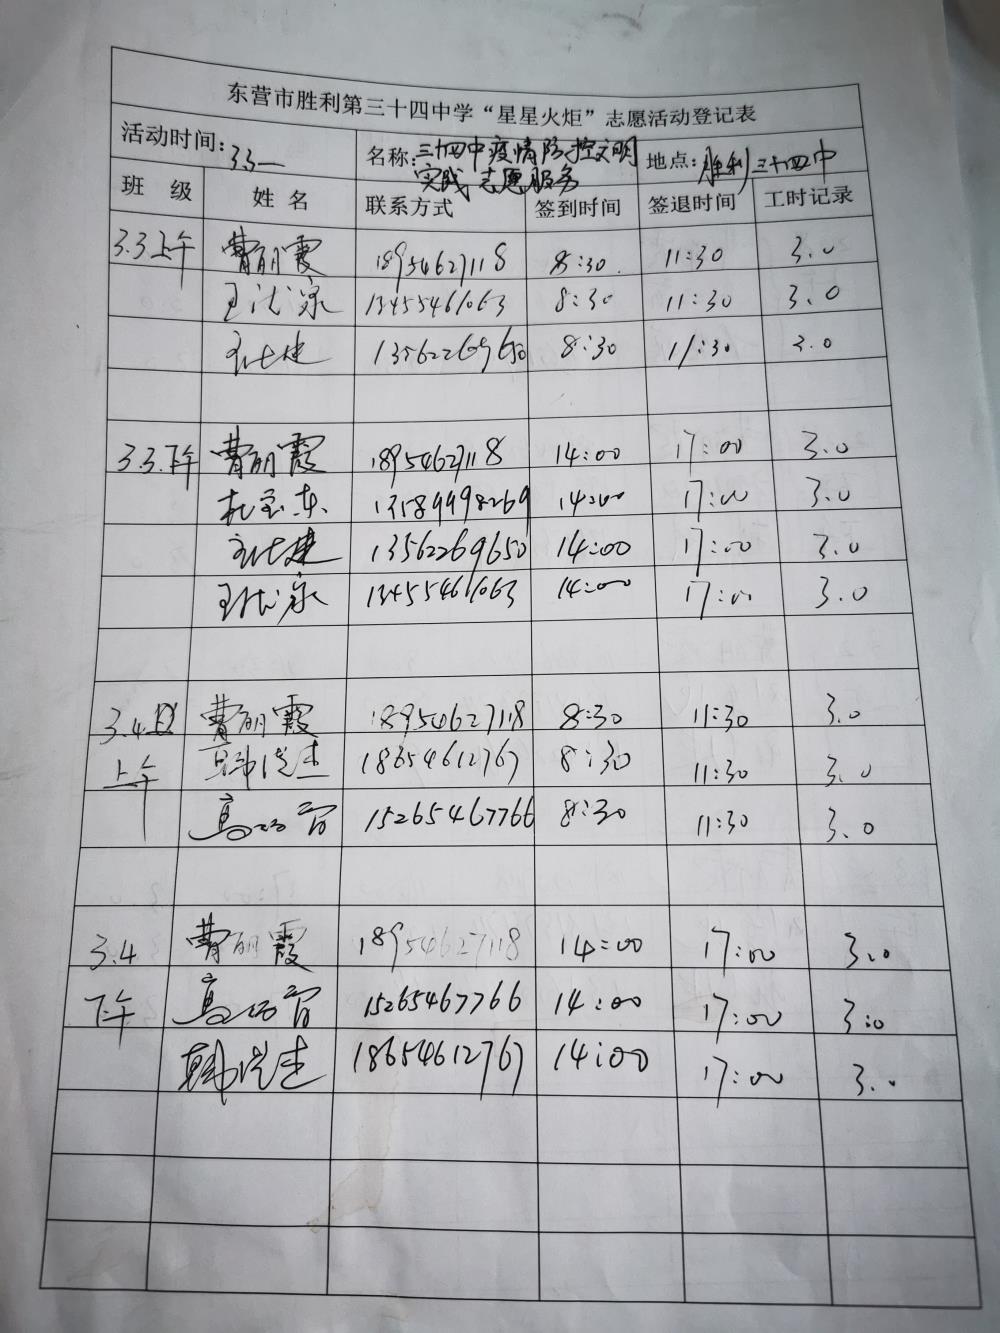 东营市胜利第三十四中学“星星火炬”志愿活动登记表
活动时间：3.3— 名称：三十四中疫情防控文明实践志愿服务 地点：胜利三十四中
班 级 姓 名 联系方式 签到时间 签退时间 工时记录
3.3上午 曹丽霞 18954627118 8:30 11:30 3.0
13455461063 8:30 11:30 3.0
13562269650 8:30 11:30 3.0
3.3.下午 曹丽霞 18954627118 14:00 17:00 3.0
13589998269 14:00 17:00 3.0
13562269650 14:00 17:00 3.0
13455461063 14:00 17:00 3.0
3.4 曹丽霞 18954627118 8:30 11:30 3.0
上午 18654612767 8:30 11:30 3.0
15265467766 8:30 11:30 3.0
3.4 曹丽霞 18954627118 14:00 17:00 3.0
下午 15265467766 14:00 17:00 3.0
18654612767 14:00 17:00 3.0